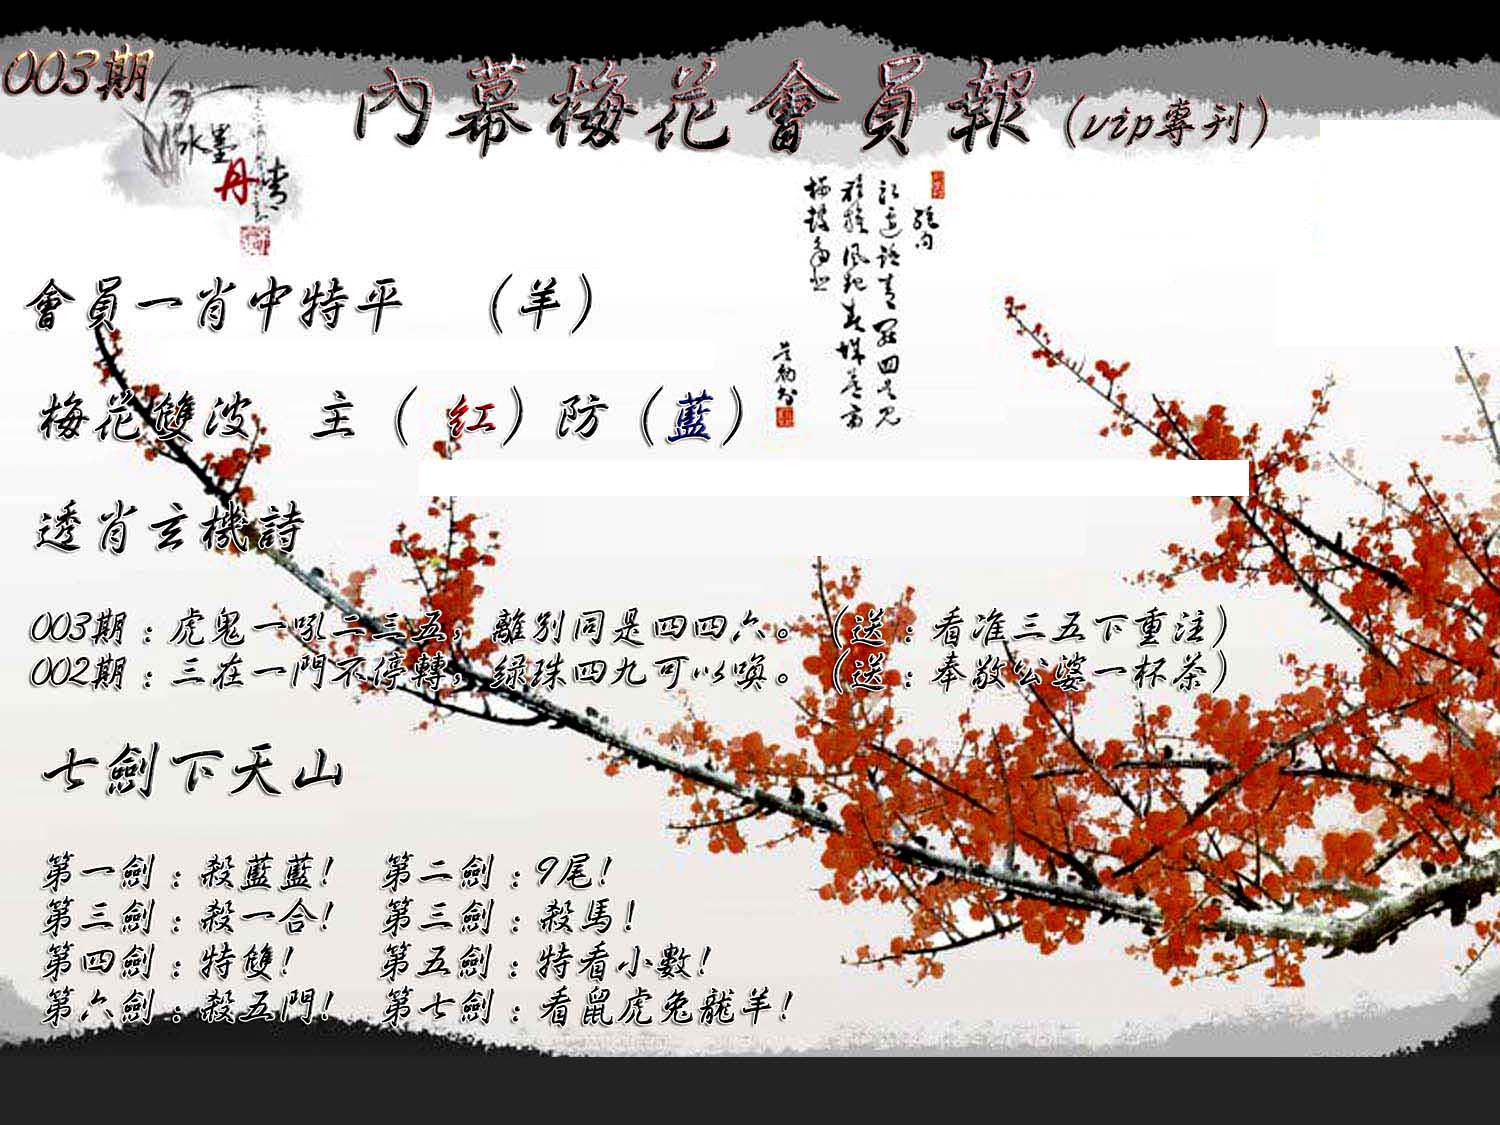 003期
內幕梅花會員報（vip專刊）
水墨
丹青
會員一肖中特平 （羊）
梅花雙波 主（紅）防（藍）
透肖玄機詩
003期：虎鬼一吼二三五，離別同是四四六。（送：看准三五下重注）
002期：三在一門不停轉，綠珠四九可以喚。（送：奉敬公婆一杯茶）
七劍下天山
第一劍：殺藍藍! 第二劍：9尾!
第三劍：殺一合! 第三劍：殺馬!
第四劍：特雙! 第五劍：特看小數!
第六劍：殺五門! 第七劍：看鼠虎兔龍羊!